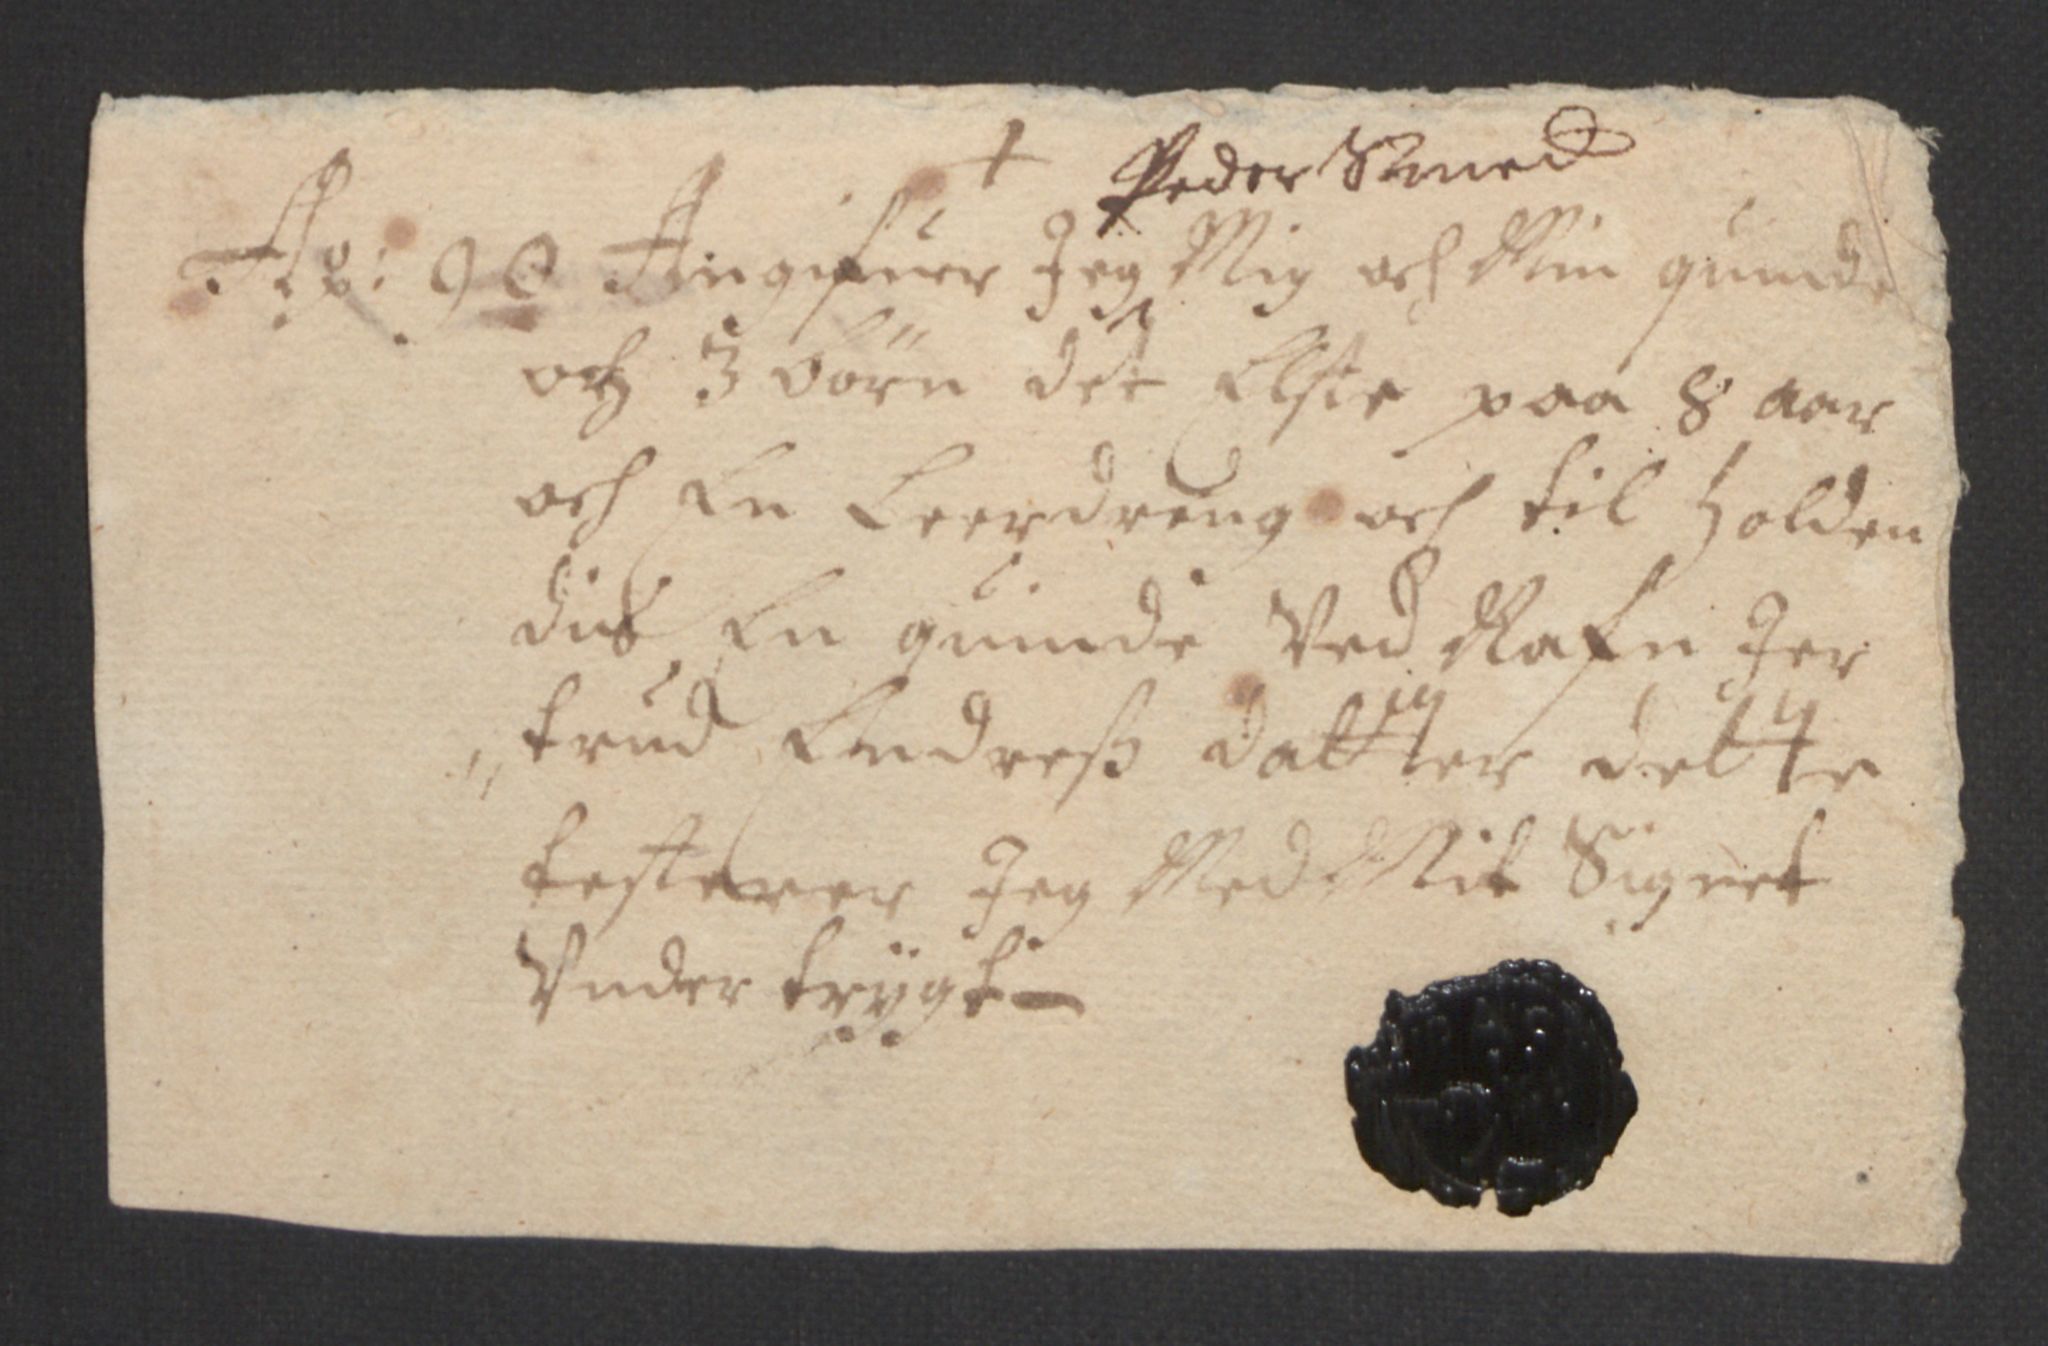 † Peder Smed
Ao: 90 Angifuer Jeg Mig och Min quinde
och 3 börn det Elste paa 8 aar
och En Leerdreng och til holden
dis En quinde Ved Nafn Jer
„trud Endreß dattter dette
testerer Jeg Med Mit Signet
Vnder trÿgt —